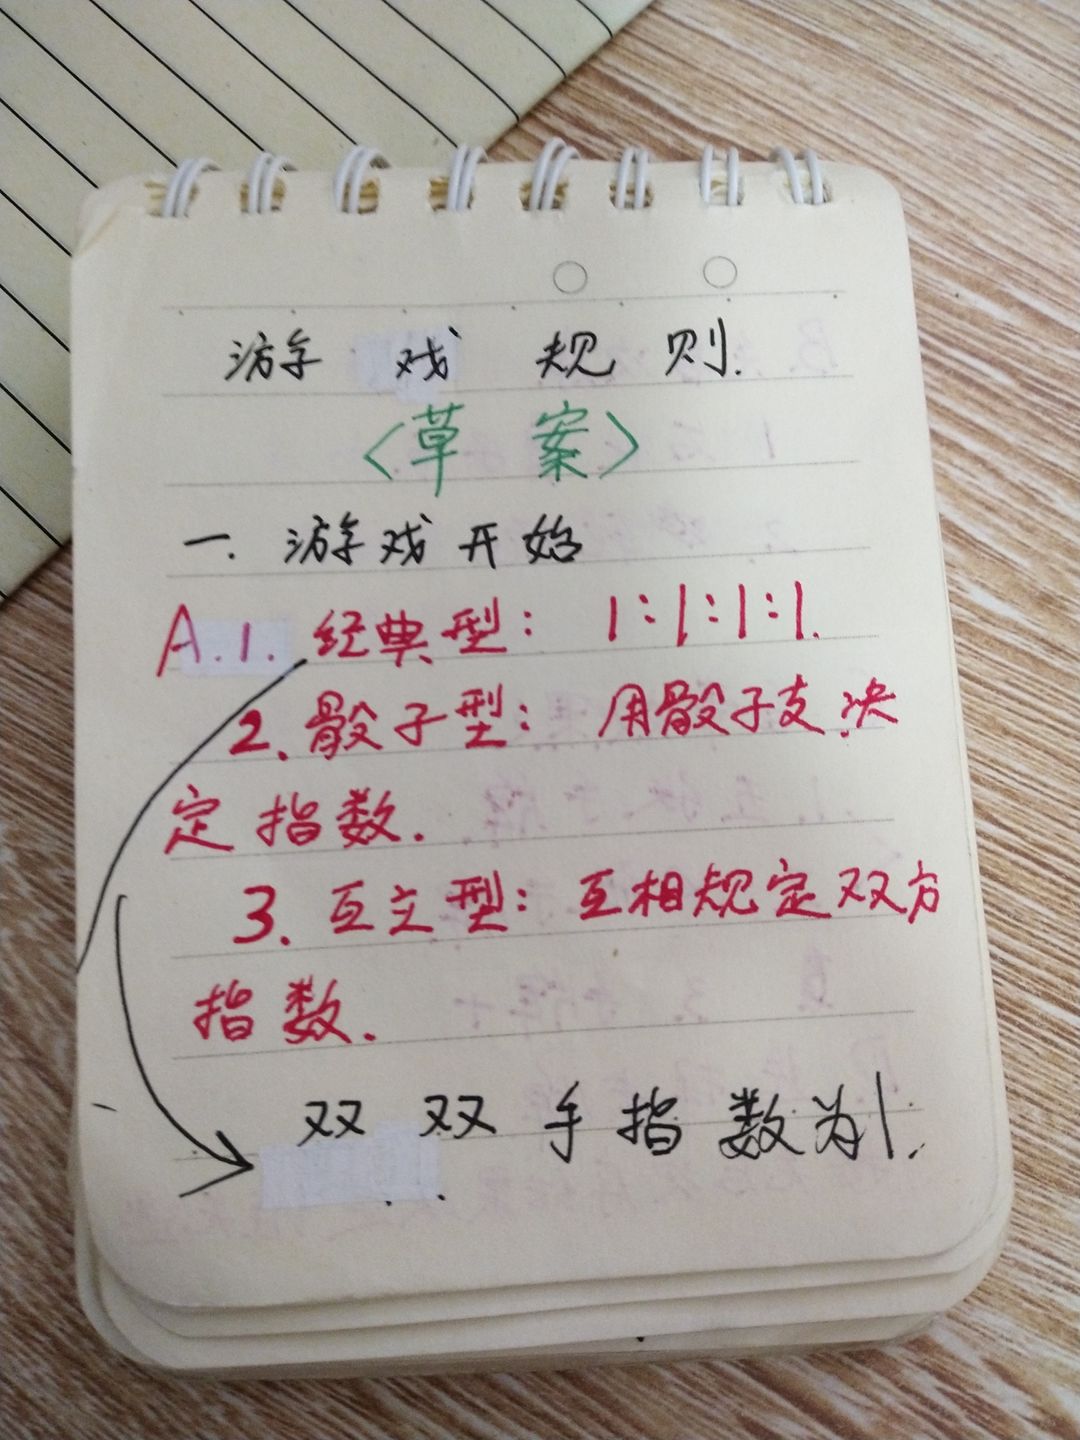 游戏规则.
〈草案〉
一. 游戏开始
A.1. 经典型: 1:1:1:1.
2. 骰子型: 用骰子支决
定指数.
3. 互立型: 互相规定双方
指数.
双双手指数为1.